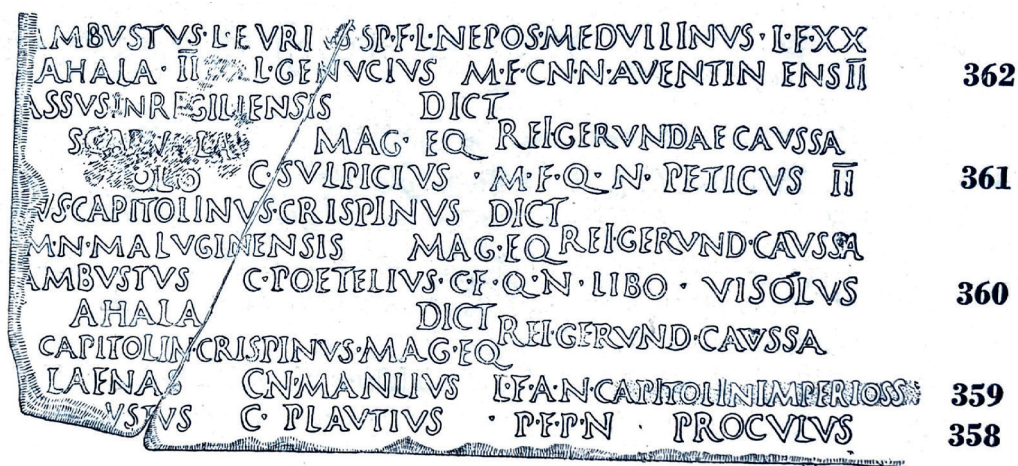 AMBVSTVS·L·FVRI S SP·F·L·N·EPOS·MEDVLLINVS·L·F·XX
AHALA·II L·GENVCIVS M·F·CN·N·AVENTIN ENS II 362
ASSVS INREGILIENSIS DICT
SCAEVOLA MAG·EQ REI·GERVNDAE CAVSSA
OLO C·SVLPICIVS·M·F·Q·N·PETICVS II 361
VS CAPITOLINVS·CRISPINVS DICT
M·N·MALVGINENSIS MAG·EQ REI·GERVND·CAVSSA
AMBVSTVS C·POETELIVS·C·F·Q·N·LIBO·VISOLVS 360
AHALA DICT REI·GERVND·CAVSSA
CAPITOLIN·CRISPINVS·MAG·EQ
LAENAS CN·MANLIVS L·F·A·N·CAPITOLIN IMPERIOSS 359
VSTVS C·PLAVTIVS·P·F·P·N PROCVLVS 358